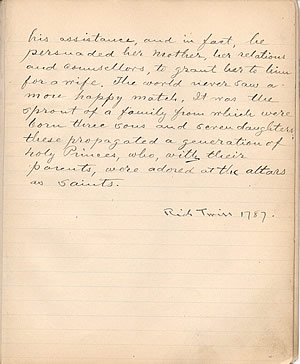 his assistance, and in fact, he
persuaded her mother, her relations
and counsellors, to grant her to him
for a wife. The world never saw a
more happy match. It was the
sprout of a family from which were
born three sons and seven daughters
these propagated a generation of
holy Princes, who, with their
parents, were adored at the altars
as saints.
Rich Twiss 1787.